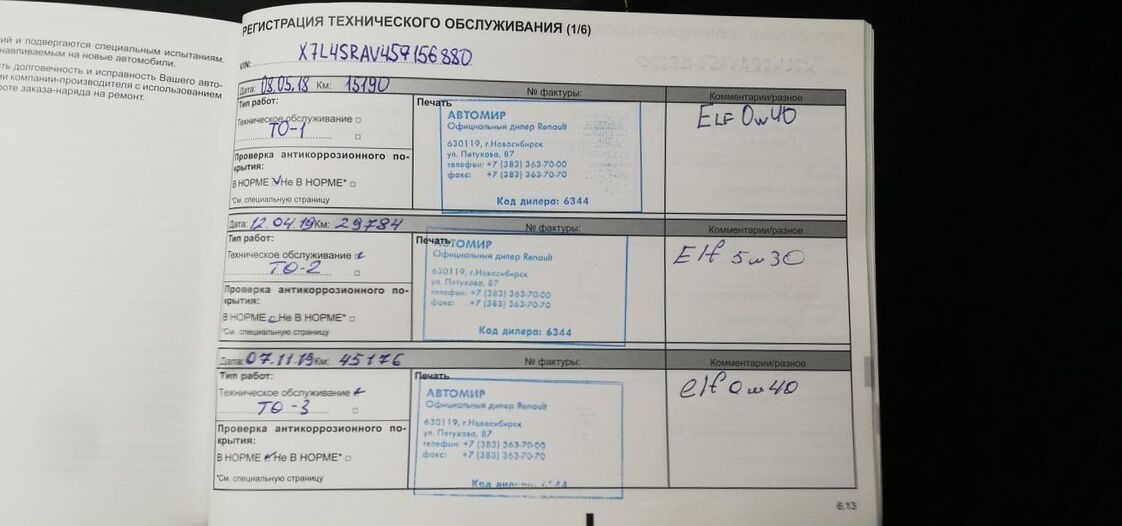 ий и подвергаются специальным испытаниям,
анавливаемым на новые автомобили.
ть долговечность и исправность Вашего авто-
ии компании-производителя с использованием
роте заказа-наряда на ремонт.
РЕГИСТРАЦИЯ ТЕХНИЧЕСКОГО ОБСЛУЖИВАНИЯ (1/6)
VIN: X7L4SRAV457156880
Дата: 08.05.18 Км: 15190 № фактуры: Комментарии/разное
Тип работ: Печать
Техническое обслуживание
ТО-1
Проверка антикоррозионного по-
крытия:
В НОРМЕ Не В НОРМЕ*
*См. специальную страницу
АВТОМИР
Официальный дилер Renault
630119, г.Новосибирск
ул. Петухова, 87
телефон: +7 (383) 363-70-00
факс: +7 (383) 363-70-70
Код дилера: 6344
ELF 0w40
Дата: 12.04.19 Км: 29784 № фактуры: Комментарии/разное
Тип работ: Печать
Техническое обслуживание
ТО-2
Проверка антикоррозионного по-
крытия:
В НОРМЕ Не В НОРМЕ*
*См. специальную страницу
АВТОМИР
Официальный дилер Renault
630119, г.Новосибирск
ул. Петухова, 87
телефон: +7 (383) 363-70-00
факс: +7 (383) 363-70-70
Код дилера: 6344
Elf 5w30
Дата: 07.11.19 Км: 45176 № фактуры: Комментарии/разное
Тип работ: Печать
Техническое обслуживание
ТО-3
Проверка антикоррозионного по-
крытия:
В НОРМЕ Не В НОРМЕ*
*См. специальную страницу
АВТОМИР
Официальный дилер Renault
630119, г.Новосибирск
ул. Петухова, 87
телефон: +7 (383) 363-70-00
факс: +7 (383) 363-70-70
Код дилера: 6344
elf 0w40
6.13